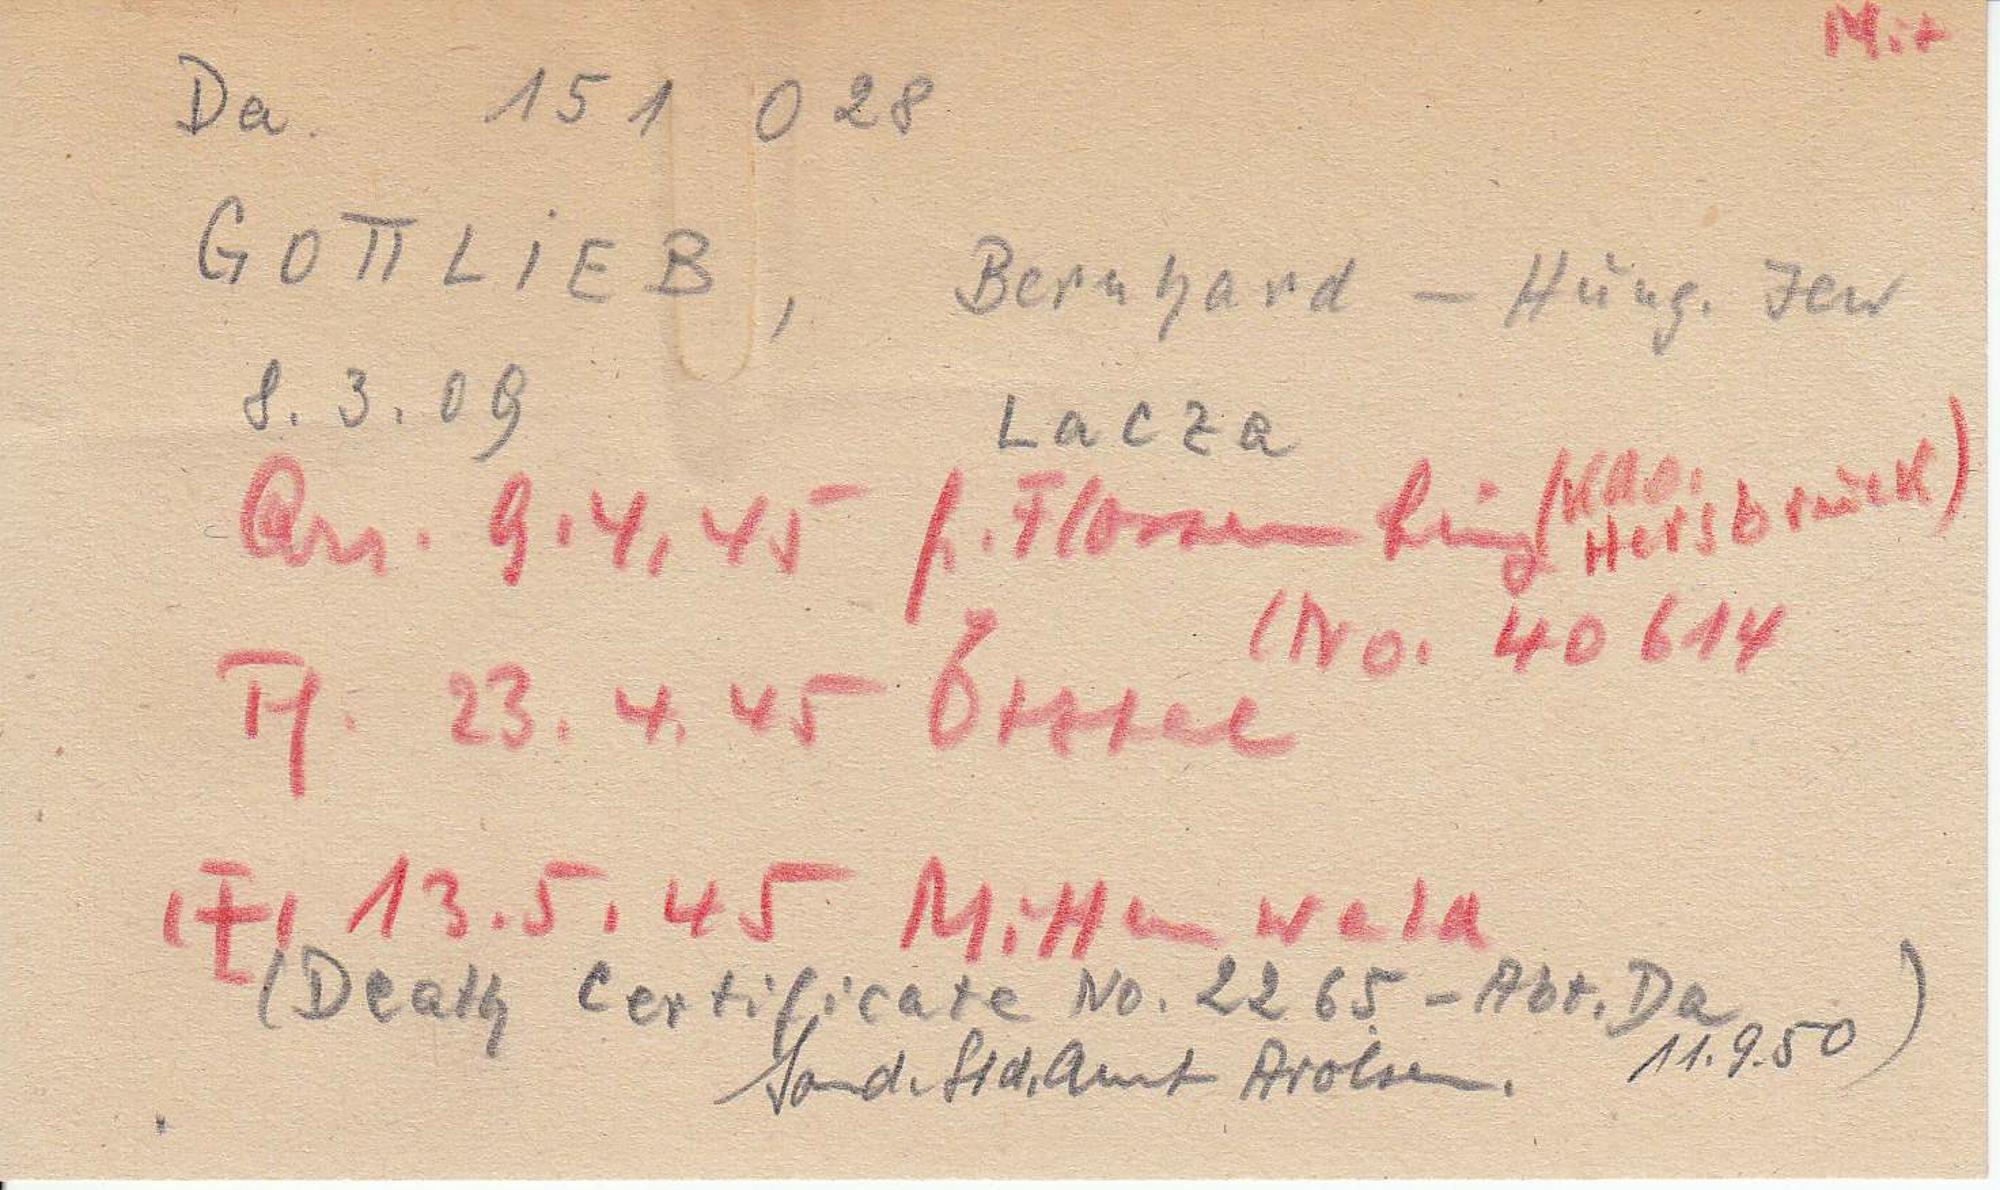 Mit
Da. 151 028
GOTTLiEB, Bernhard – Hŭng. Jew
8.3.09 Lacza
Arr. 9.4.45 f. Flossenbürg (Kdo. Hersbruck)
(No. 40614
Tf. 23.4.45 Ötztal
13.5.45 Mittenwald
(Death Certificate No. 2265 – Abt. Da
Sond. Std. Amt Arolsen. 11.9.50)